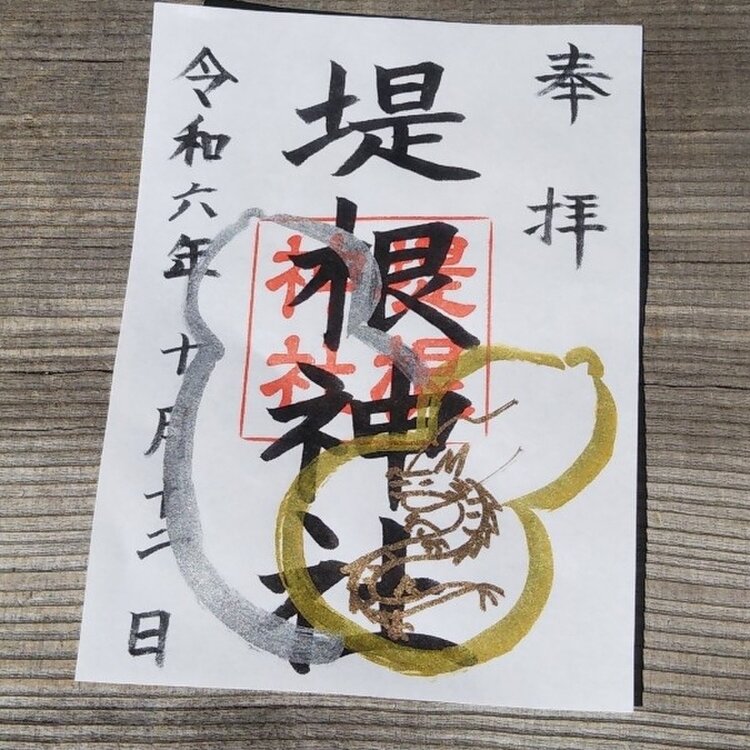 奉拝
堤根神社
堤根神社
令和六年十月十二日